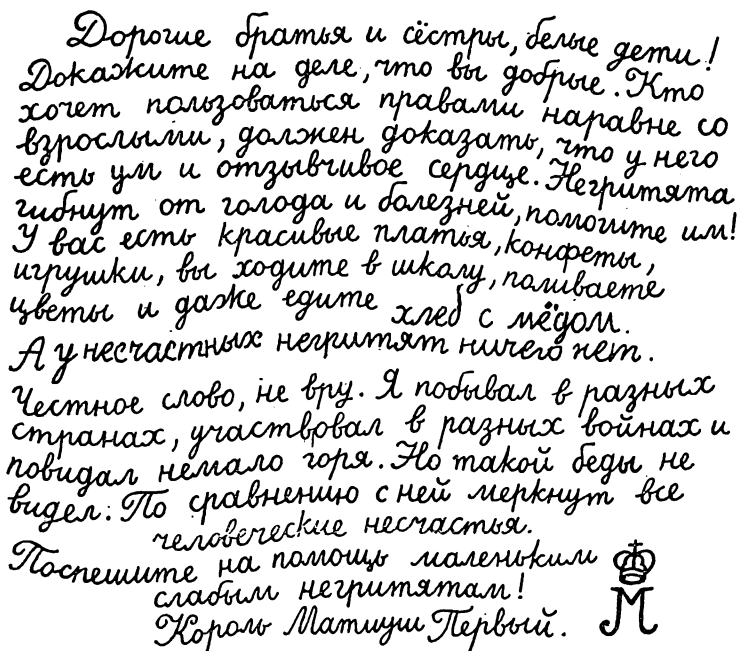 Дорогие братья и сёстры, белые дети!
Докажите на деле, что вы добрые. Кто
хочет пользоваться правами наравне со
взрослыми, должен доказать, что у него
есть ум и отзывчивое сердце. Негритята
гибнут от голода и болезней, помогите им!
У вас есть красивые платья, конфеты,
игрушки, вы ходите в школу, поливаете
цветы и даже едите хлеб с мёдом.
А у несчастных негритят ничего нет.
Честное слово, не вру. Я побывал в разных
странах, участвовал в разных войнах и
повидал немало горя. Но такой беды не
видел. По сравнению с ней меркнут все
человеческие несчастья.
Поспешите на помощь маленьким
слабым негритятам!
Король Матиуш Первый.
М